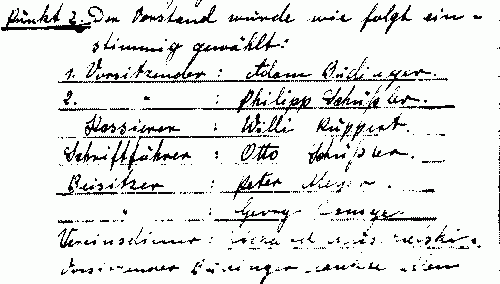 Punkt 2. Der Vorstand wurde wie folgt ein-
stimmig gewählt:
1. Vorsitzender : Adam Büdinger.
2. " : Philipp Schüßler.
Kassierer : Willi Ruppert.
Schriftführer : Otto Schüßler.
Beisitzer : Peter
" : Georg
Vereinsdiener :
Vorsitzender Büdinger